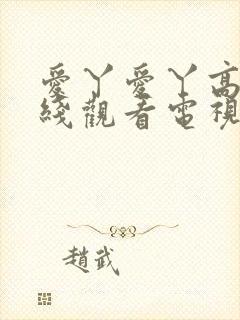 愛丫愛丫高
綫觀看電視
趙武